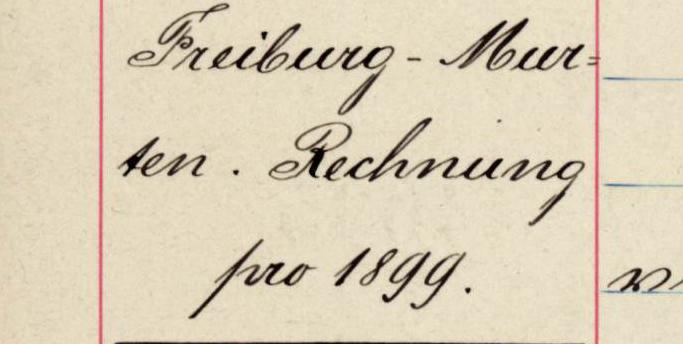 Freiburg - Mur=
ten. Rechnung
pro 1899.